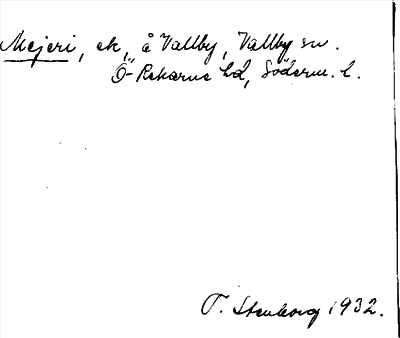 Mejeri, ek, å Vallby, Vallby sn.
Ö-Rekarne hd, Söderm. l.
T. Stenborg 1932.